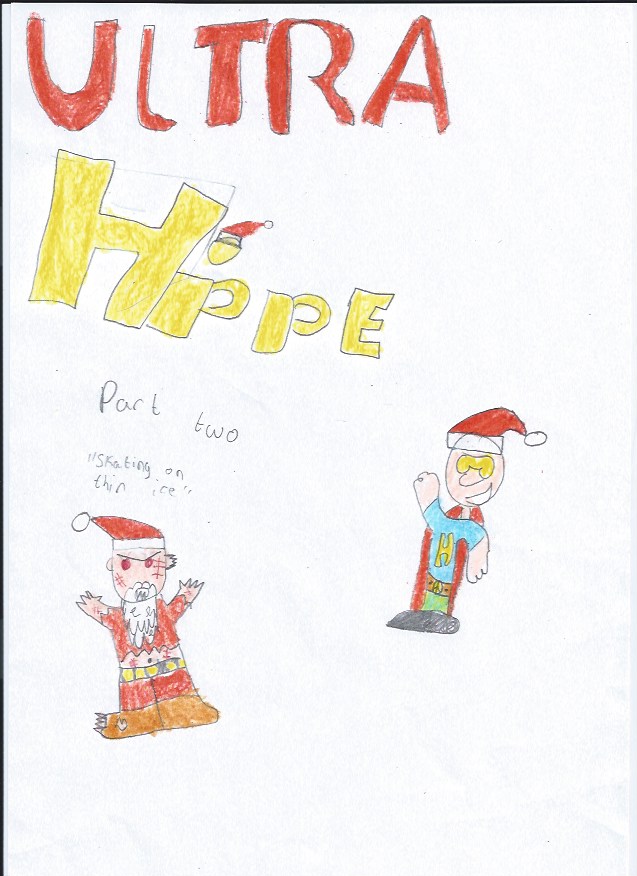 ULTRA
HiPPE
Part two
"Skating on
thin ice"
H